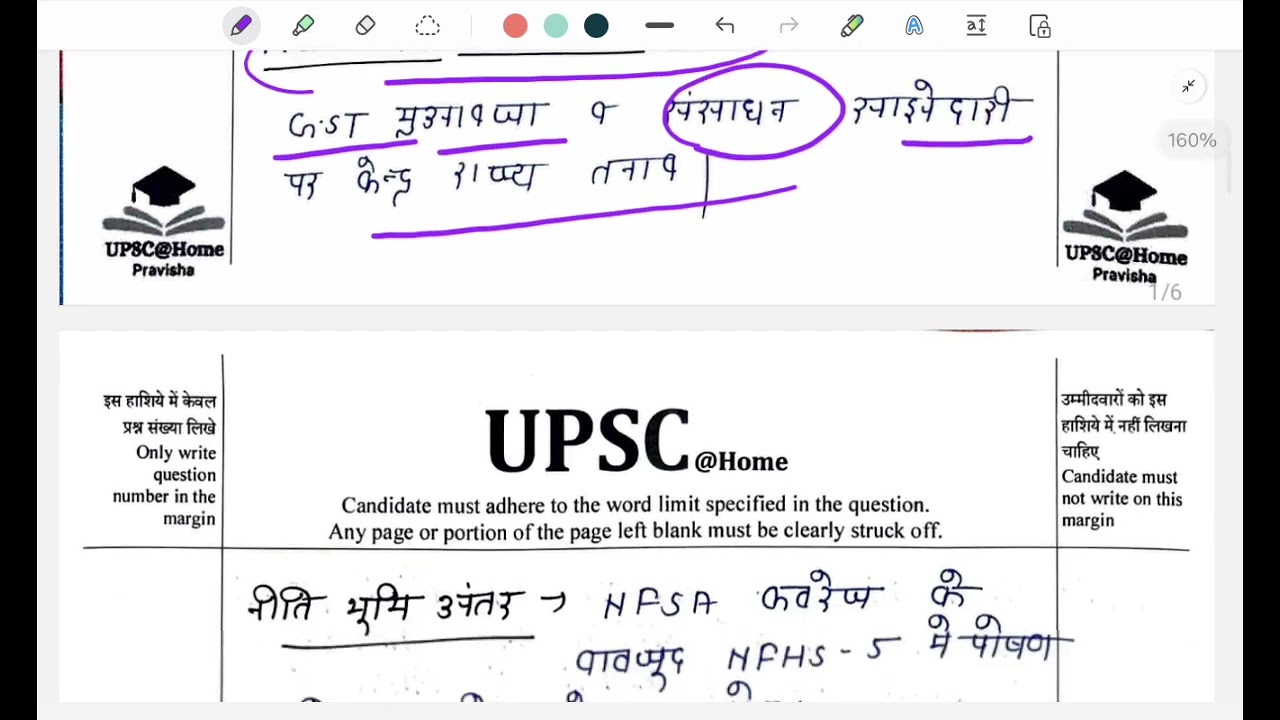 GST मुआवजा व संसाधन साझेदारी
पर केन्द्र राज्य तनाव
160%
UPSC@Home
Pravisha
UPSC@Home
Pravisha
1/6
इस हाशिये में केवल
प्रश्न संख्या लिखे
Only write
question
number in the
margin
UPSC@Home
Candidate must adhere to the word limit specified in the question.
Any page or portion of the page left blank must be clearly struck off.
उम्मीदवारों को इस
हाशिये में नहीं लिखना
चाहिए
Candidate must
not write on this
margin
नीति भूमि अंतर → NFSA कवरेज के
वावजूद NFHS-5 में पोषण